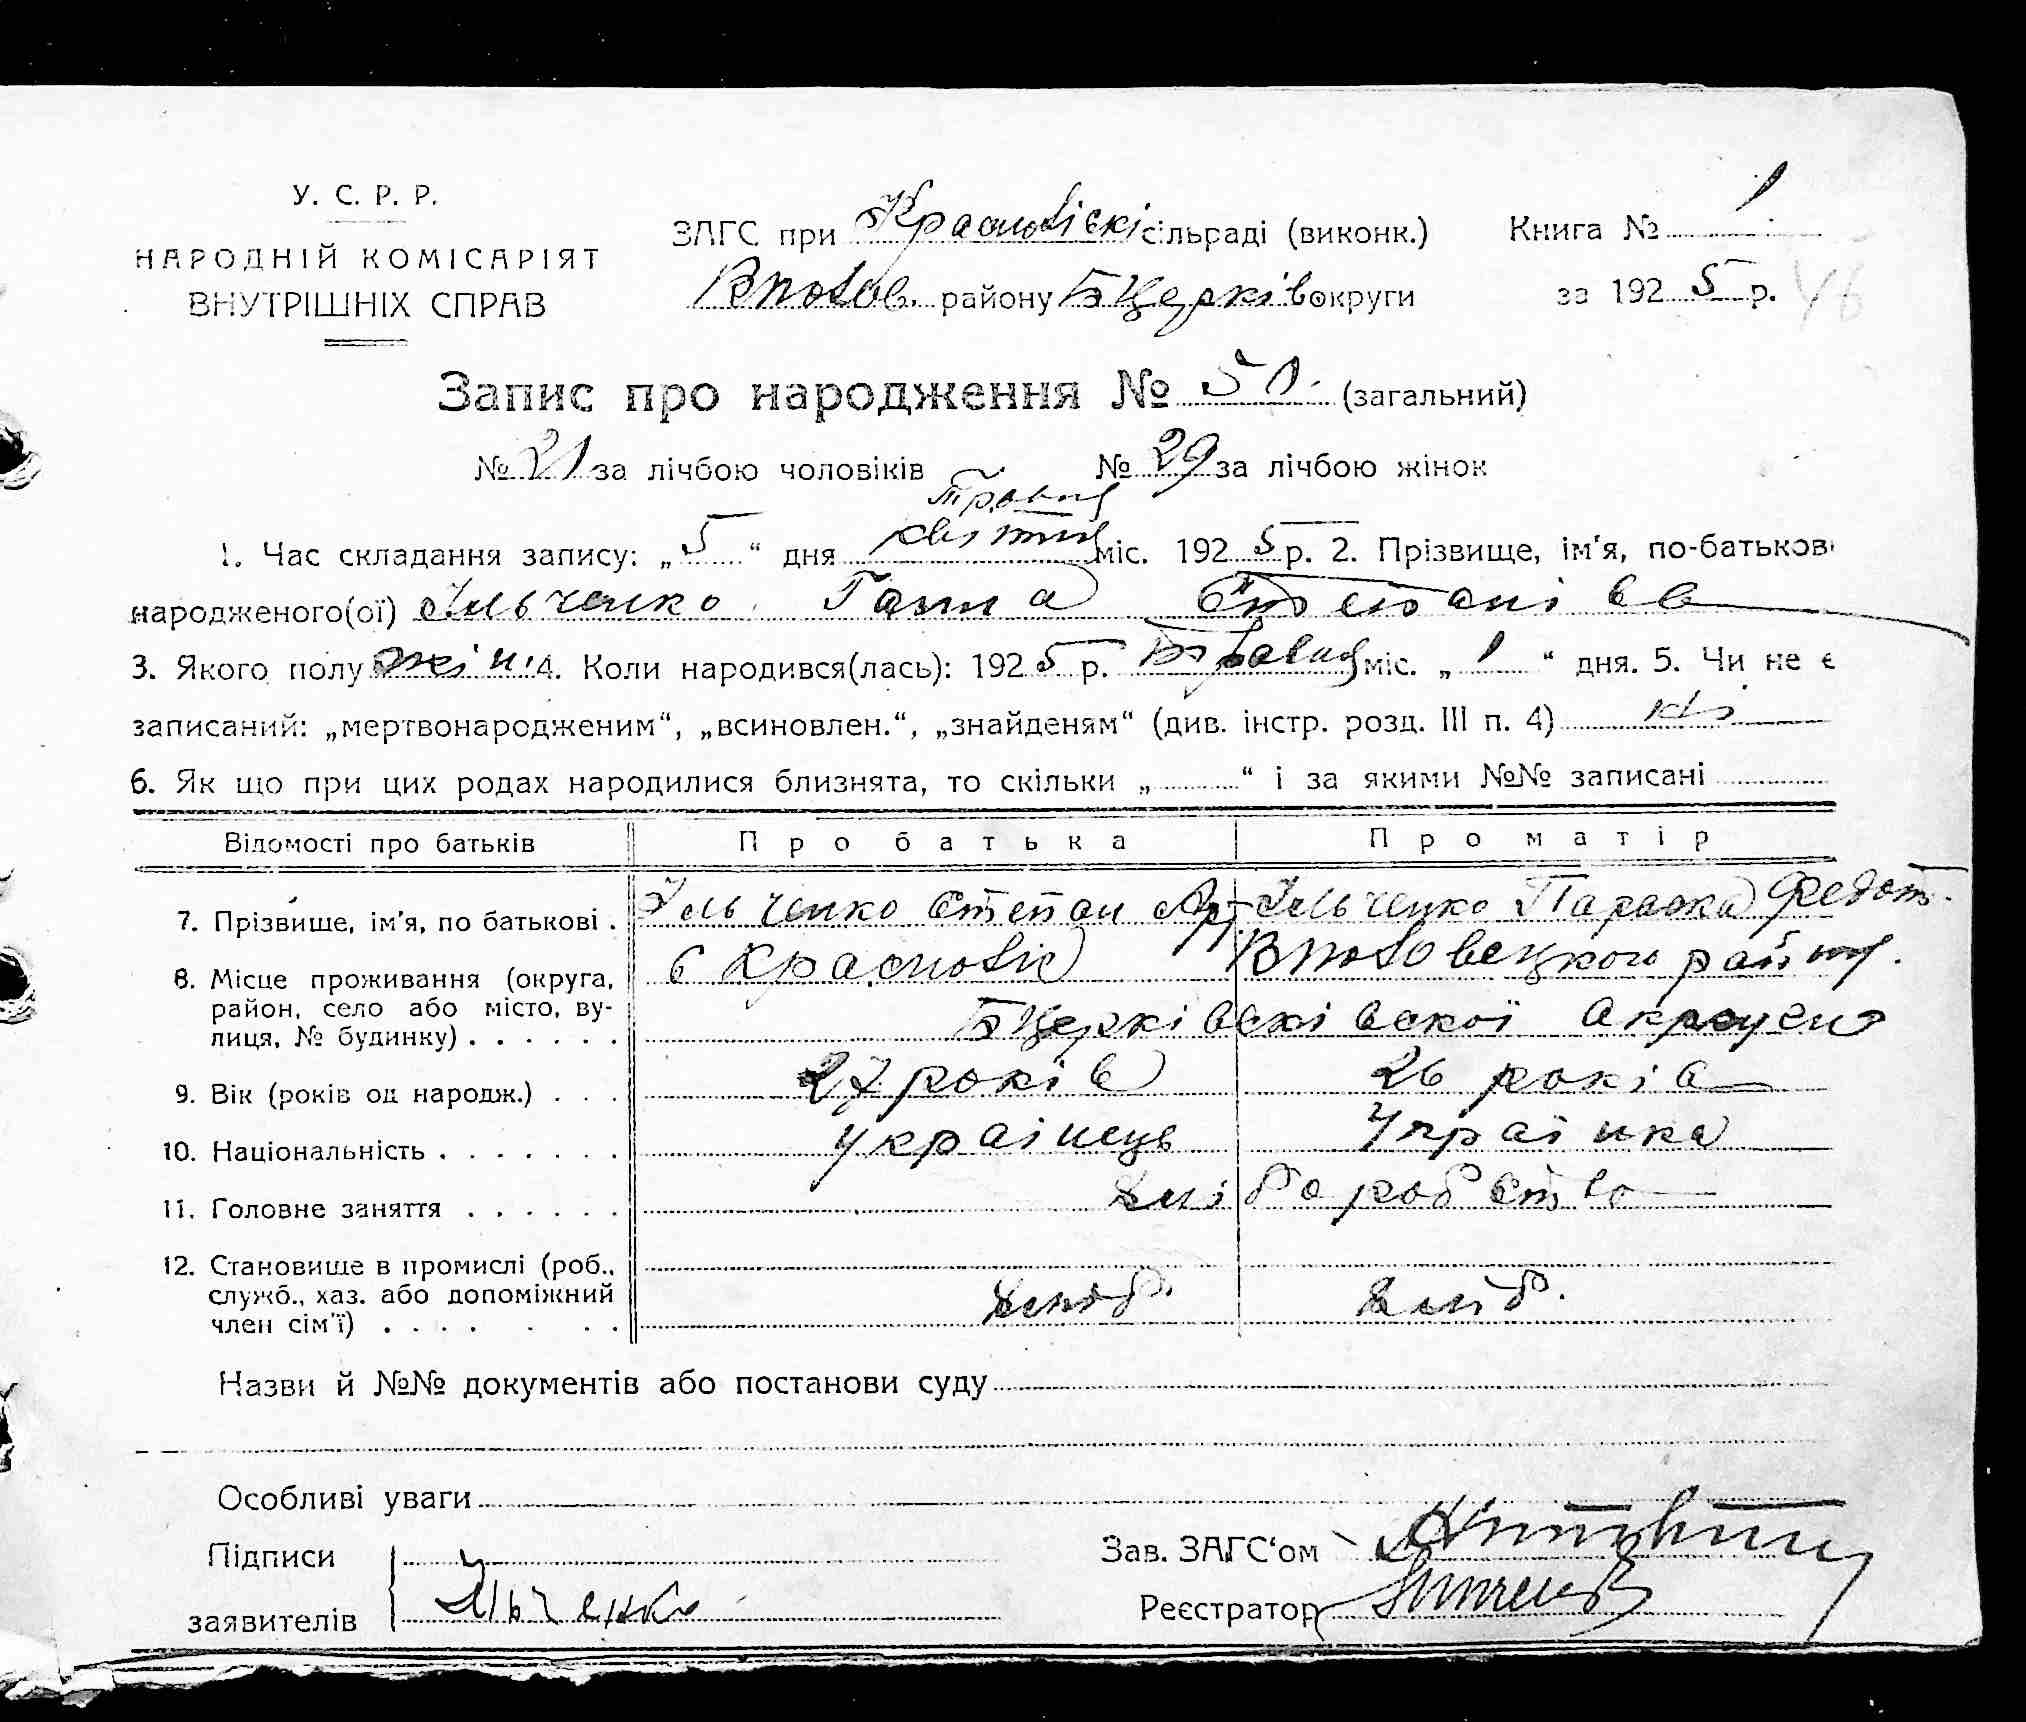 У. С. Р. Р.
НАРОДНІЙ КОМІСАРІЯТ
ВНУТРІШНІХ СПРАВ
ЗАГС при Краснолівскі сільраді (виконк.) Книга № 1
району Б Церків округи за 1925 р. 46
Запис про народження № 51. (загальний)
№ 21 за лічбою чоловіків № 29 за лічбою жінок
травня
1. Час складання запису: „5“ дня квітня міс. 1925 р. 2. Прізвище, ім'я, по-батькові
народженого(ої) Ільченко Ганна Степанівв
3. Якого полу жін. 4. Коли народився(лась): 1925 р. Травня міс. „1“ дня. 5. Чи не є
записаний: „мертвонародженим“, „всиновлен.“, „знайденям“ (див. інстр. розд. III п. 4) ні
6. Як що при цих родах народилися близнята, то скільки „ “ і за якими №№ записані
Відомості про батьків Про батька Про матір
7. Прізвище, ім'я, по батькові . Ільченко Степан Ільченко Параска Федот.
8. Місце проживання (округа, район, село або місто, вулиця, № будинку) . . . . . . с района.
Б Церків
9. Вік (років од народж.) . . . 27 років 26 років
10. Національність . . . . . . . українець Українка
11. Головне заняття . . . . . . хліборобство
12. Становище в промислі (роб., служб., хаз. або допоміжний член сім'ї) . . . . . . . хліб. хліб.
Назви й №№ документів або постанови суду
Особливі уваги
Підписи
заявителів Ільченко
Зав. ЗАГС'ом
Реєстратор